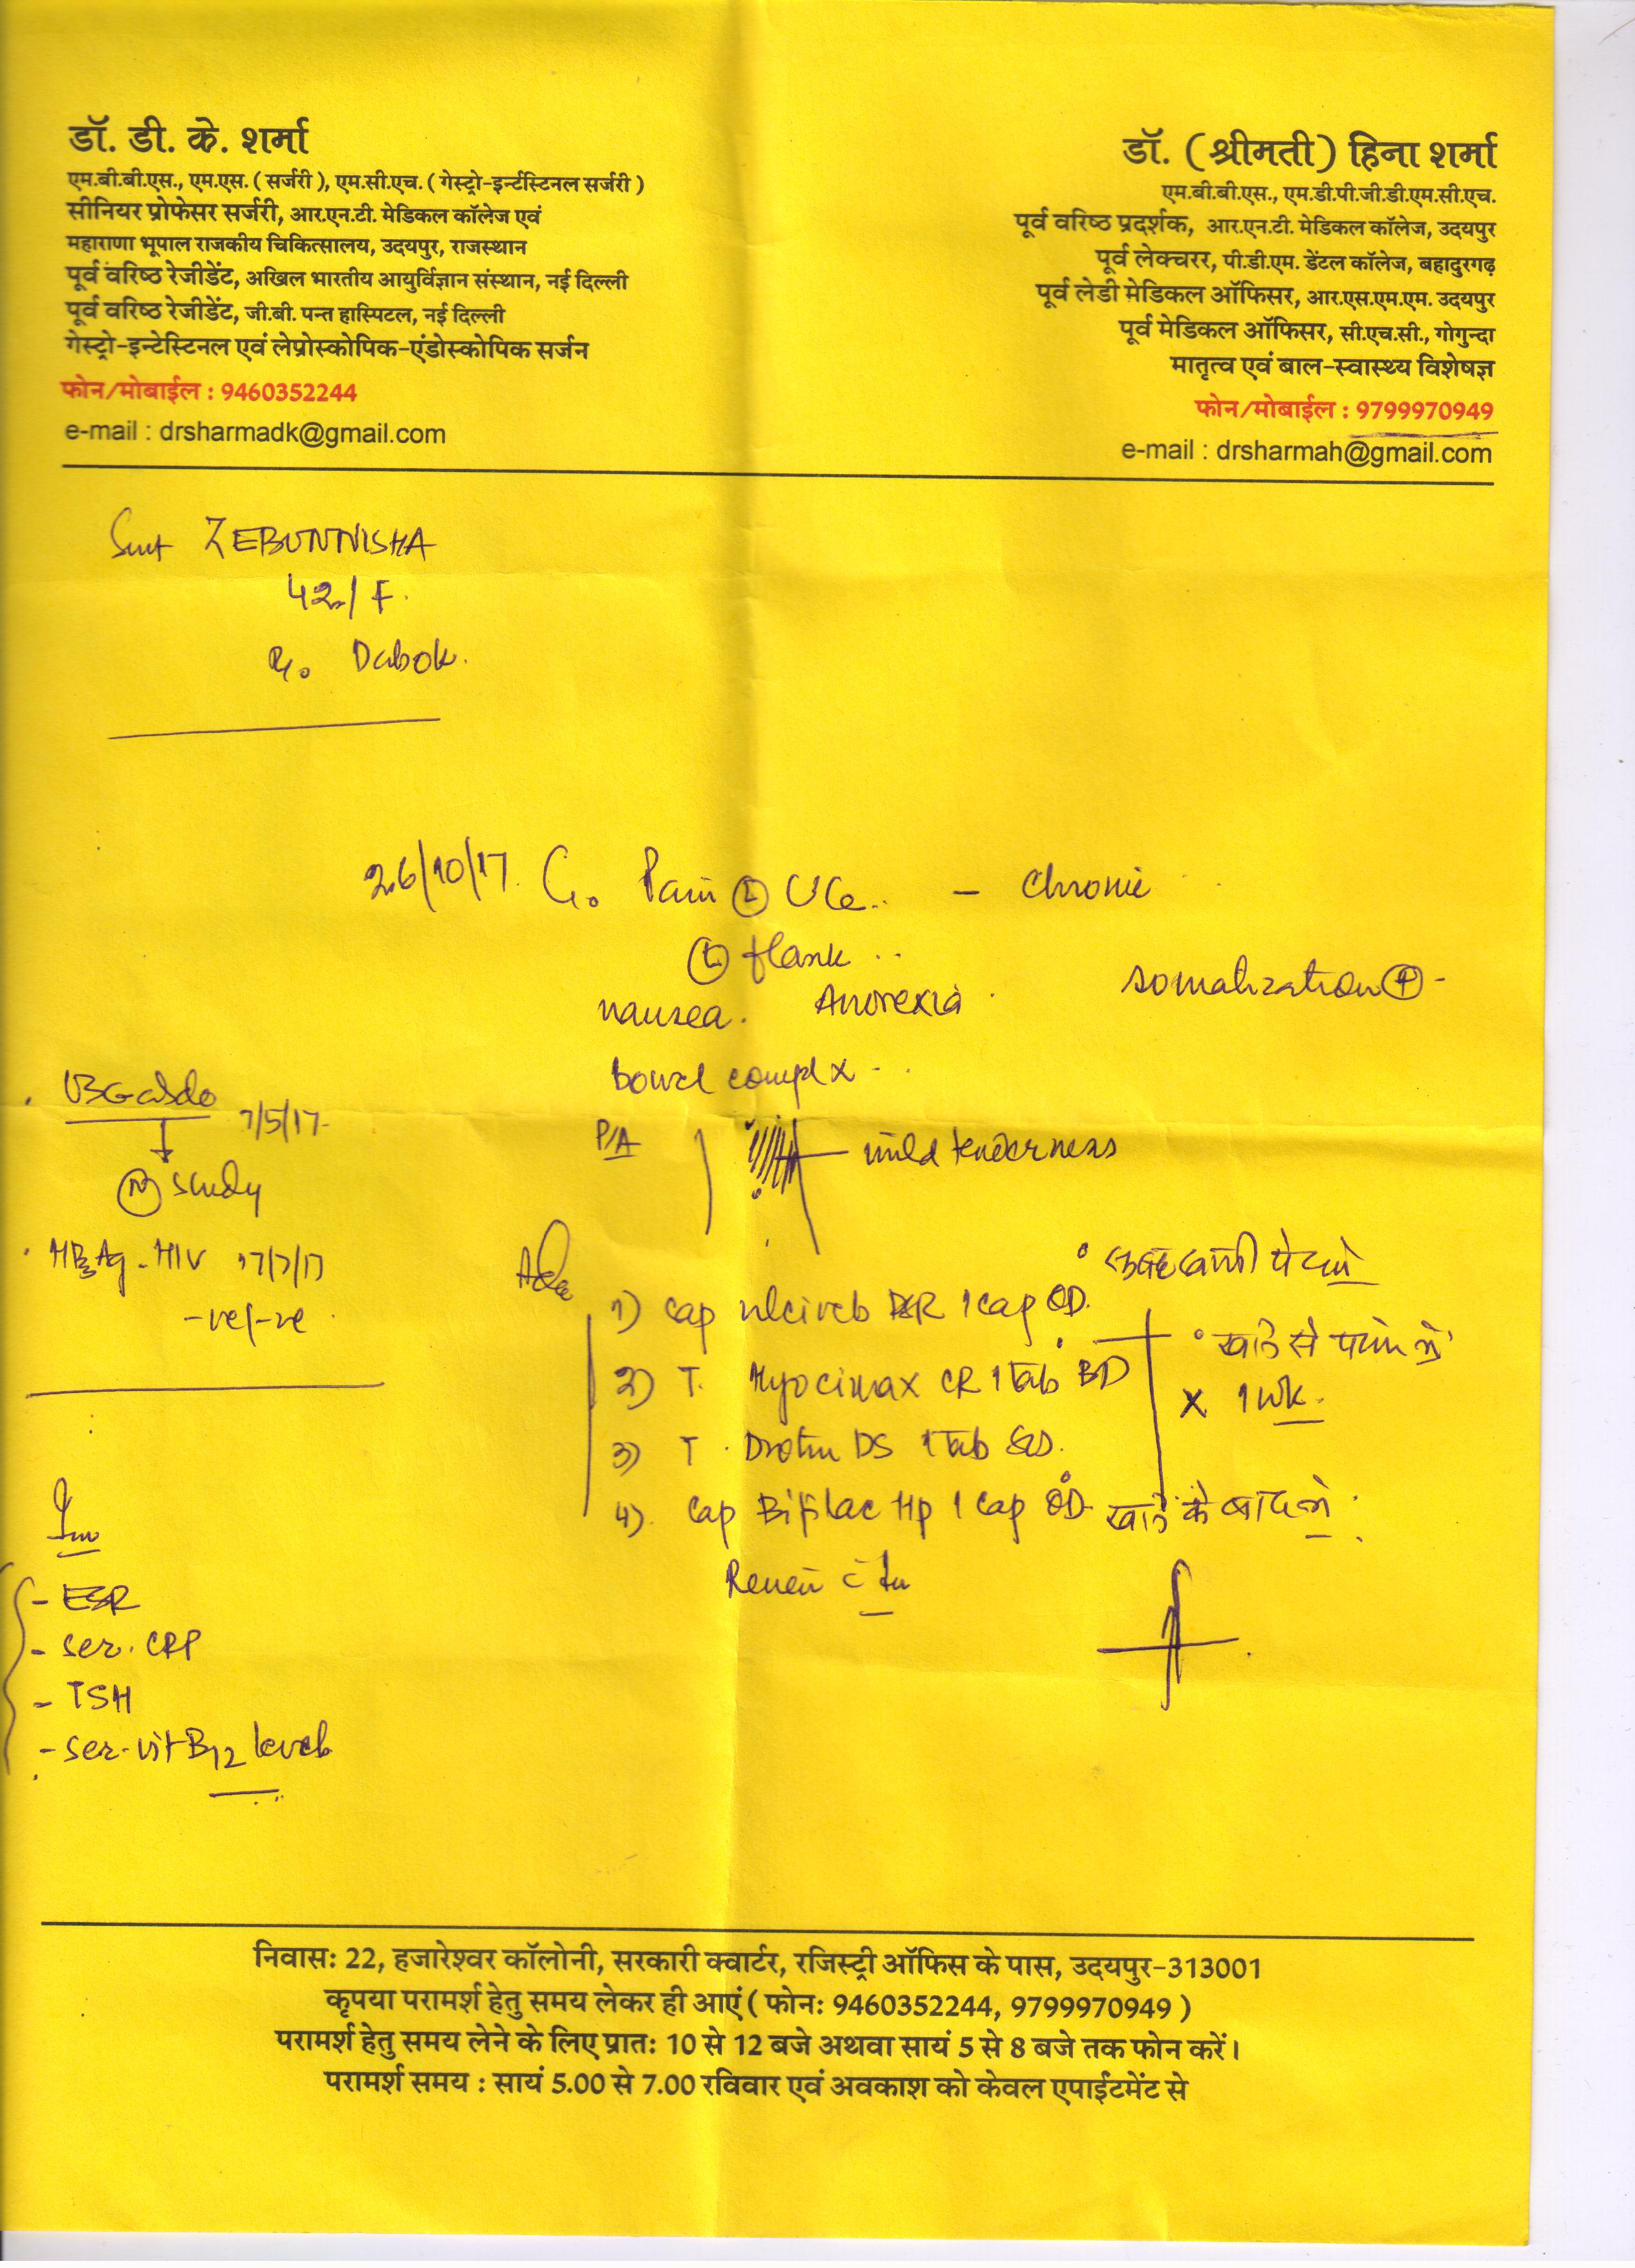 डॉ. डी. के. शर्मा
एम.बी.बी.एस., एम.एस. ( सर्जरी ), एम.सी.एच. ( गेस्ट्रो-इन्टेंस्टिनल सर्जरी )
सीनियर प्रोफेसर सर्जरी, आर.एन.टी. मेडिकल कॉलेज एवं
महाराणा भूपाल राजकीय चिकित्सालय, उदयपुर, राजस्थान
पूर्व वरिष्ठ रेजीडेंट, अखिल भारतीय आयुर्विज्ञान संस्थान, नई दिल्ली
पूर्व वरिष्ठ रेजीडेंट, जी.बी. पन्त हास्पिटल, नई दिल्ली
गेस्ट्रो-इन्टेस्टिनल एवं लेप्रोस्कोपिक-एंडोस्कोपिक सर्जन
फोन/मोबाईल : 9460352244
e-mail : drsharmadk@gmail.com
डॉ. ( श्रीमती ) हिना शर्मा
एम.बी.बी.एस., एम.डी.पी.जी.डी.एम.सी.एच.
पूर्व वरिष्ठ प्रदर्शक, आर.एन.टी. मेडिकल कॉलेज, उदयपुर
पूर्व लेक्चरर, पी.डी.एम. डेंटल कॉलेज, बहादुरगढ़
पूर्व लेडी मेडिकल ऑफिसर, आर.एस.एम.एम. उदयपुर
पूर्व मेडिकल ऑफिसर, सी.एच.सी., गोगुन्दा
मातृत्व एवं बाल-स्वास्थ्य विशेषज्ञ
फोन/मोबाईल : 9799970949
e-mail : drsharmah@gmail.com
Smt ZEBUNNISHA
42/F.
Dabok.
26/10/17. C/o Pain (L) - Chronic
(L) flank
nausea. Anorexia somatization (+) -
bowel compl x
USG abdo 7/5/17
P/A mild tenderness
(N) study
HBsAg - HIV 17/7/17
-ve/-ve
Adv
सुबह खाली पेट लें
1) Cap DSR 1 cap OD.
खाने से पहले लें
2) T. Hyocimax CR 1 Tab BD
x 1 wk.
3) T. Drotin DS 1 Tab
4) Cap Bifilac Hp 1 cap OD खाने के बाद लें
Inv
- ESR
- Ser. CRP
- TSH
- Ser. Vit B12 level
निवास: 22, हजारेश्वर कॉलोनी, सरकारी क्वार्टर, रजिस्ट्री ऑफिस के पास, उदयपुर-313001
कृपया परामर्श हेतु समय लेकर ही आएं ( फोन: 9460352244, 9799970949 )
परामर्श हेतु समय लेने के लिए प्रात: 10 से 12 बजे अथवा सायं 5 से 8 बजे तक फोन करें।
परामर्श समय : सायं 5.00 से 7.00 रविवार एवं अवकाश को केवल एपाईंटमेंट से